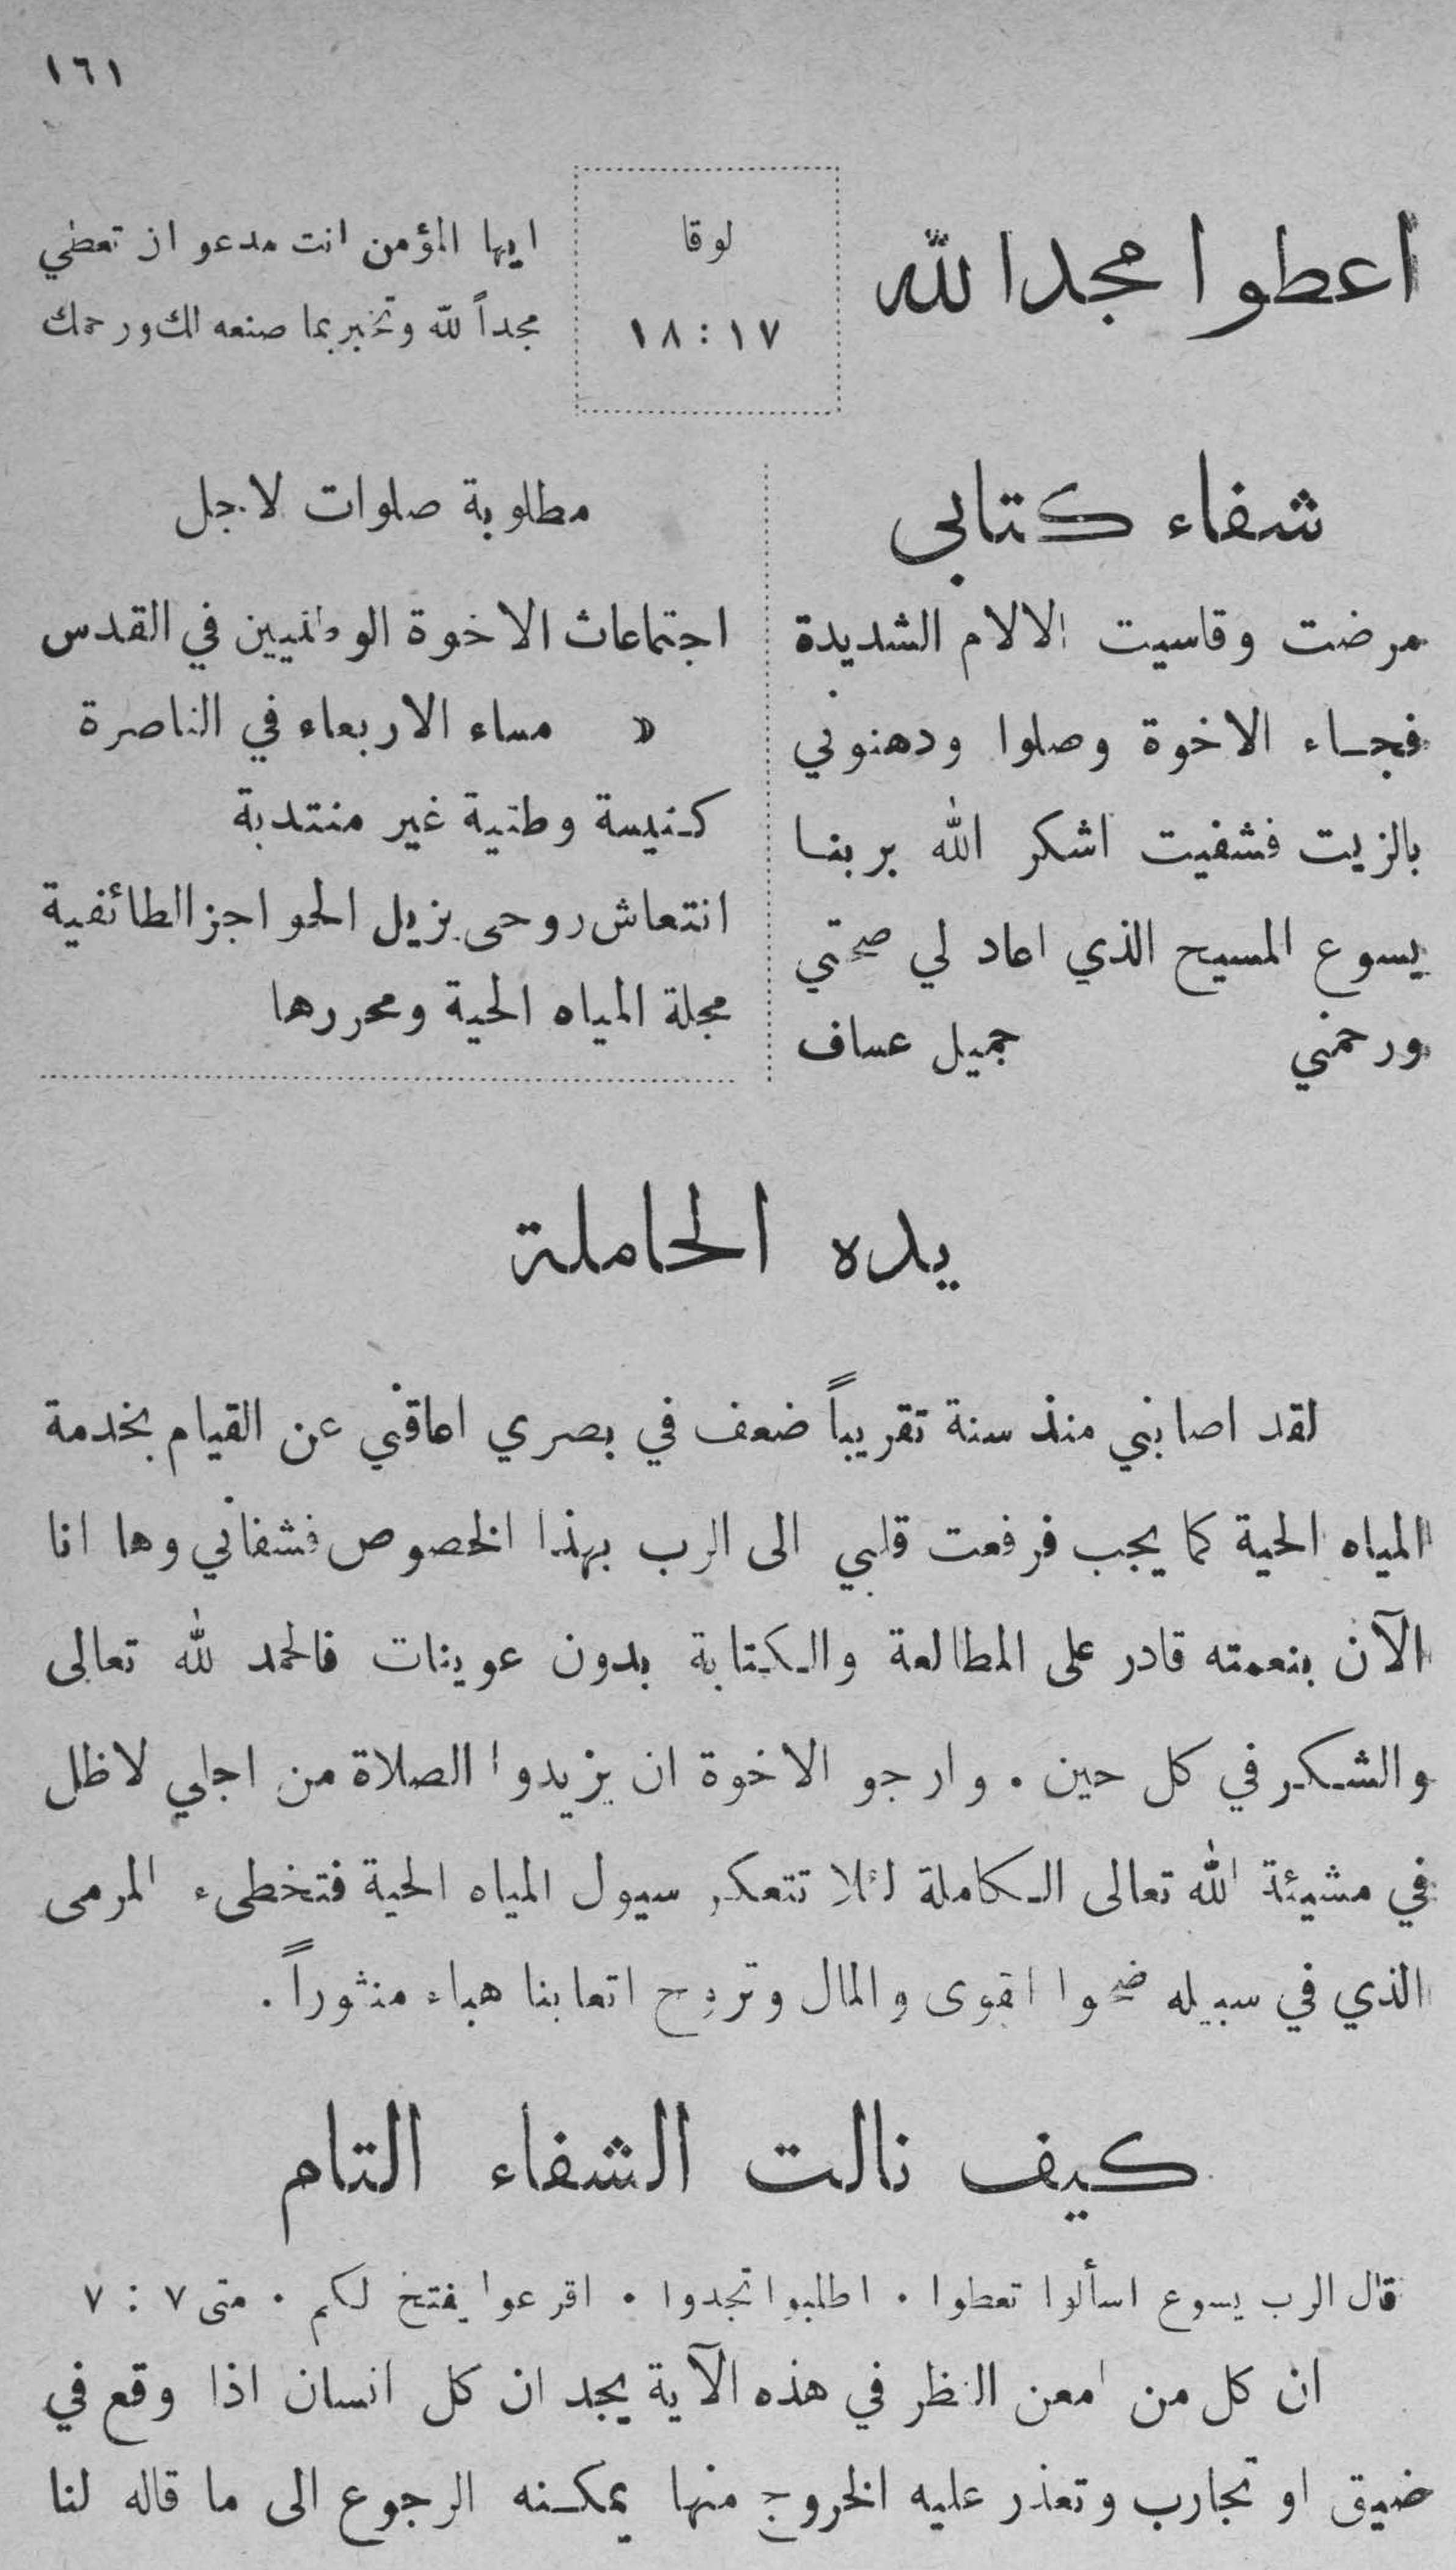 ١٦١
اعطوا مجدا لله
لوقا
١٧ : ١٨
ايها المؤمن انت مدعو ان تعطي
مجداً لله وتخبر بما صنعه لك ورحمك
شفاء كتابي
مرضت وقاسيت الالام الشديدة
فجاء الاخوة وصلوا ودهنوني
بالزيت فشفيت اشكر الله بربنا
يسوع المسيح الذي اعاد لي صحتي
ورحمني جميل عساف
مطلوبة صلوات لاجل
اجتماعات الاخوة الوطنيين في القدس
« مساء الاربعاء في الناصرة
كنيسة وطنية غير منتدبة
انتعاش روحي يزيل الحواجز الطائفية
مجلة المياه الحية ومحررها
يده الحاملة
لقد اصابني منذ سنة تقريباً ضعف في بصري اعاقني عن القيام بخدمة
المياه الحية كما يجب فرفعت قلبي الى الرب بهذا الخصوص فشفاني وها انا
الآن بنعمته قادر على المطالعة والكتابة بدون عوينات فالحمد لله تعالى
والشكر في كل حين . وارجو الاخوة ان يزيدوا الصلاة من اجلي لاظل
في مشيئة الله تعالى الكاملة لئلا تتعكر سيول المياه الحية فتخطىء المرمى
الذي في سبيله ضحوا القوى والمال وتروح اتعابنا هباء منثوراً .
كيف نالت الشفاء التام
قال الرب يسوع اسألوا تعطوا . اطلبوا تجدوا . اقرعوا يفتح لكم . متى ٧ : ٧
ان كل من امعن النظر في هذه الآية يجد ان كل انسان اذا وقع في
ضيق او تجارب وتعذر عليه الخروج منها يمكنه الرجوع الى ما قاله لنا